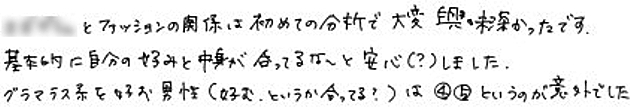 とファッションの関係は初めての分析で大変興味深かったです.
基本的に自分の好みと中身が合ってるなーと安心(?)しました.
グラマラス系を好む男性(好む.というか合ってる?)は④⑤というのが意外でした